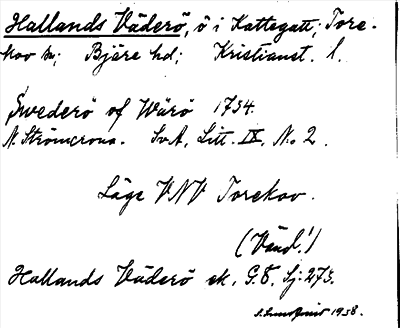 Hallands Väderö, ö i Kattegatt, Tore-
kov sn; Bjäre hd; Kristianst. l.
Swederö of Wärö 1734.
N. Strömcrona. SvA, Litt. IX, No 2.
Läge VNV Torekov.
(Vänd!)
Hallands Väderö ek. G.8. Sj:273.
1938.